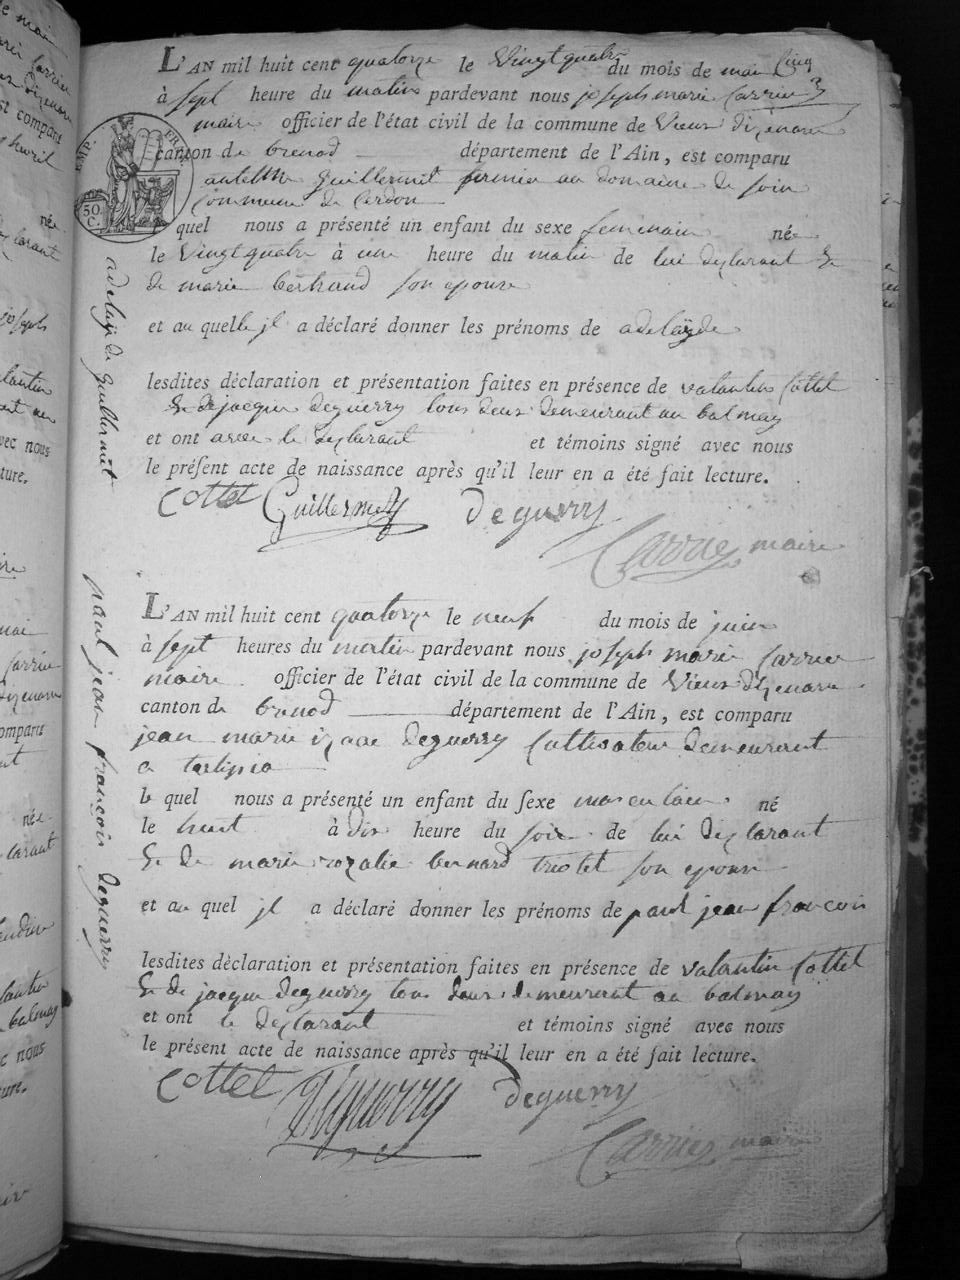 L'AN mil huit cent quatorze le vingtquatre du mois de mai
à sept heure du matin pardevant nous joseph marie Carrier
maire officier de l'état civil de la commune de Vieux dizenave
canton de brenod département de l'Ain, est comparu
antelme Guillermet fermier au domaine de soin
Commune de Cerdon
quel nous a présenté un enfant du sexe feminain née
le Vingtquatre à une heure du matin de lui desclarant &
de marie bertrand son epouse
et au quelle jl a déclaré donner les prénoms de adelayde
lesdites déclaration et présentation faites en présence de valantin Cottet
& de jacque deguerry tous deux demeurant au balmay
et ont avec le desclarant et témoins signé avec nous
le présent acte de naissance après qu'il leur en a été fait lecture.
Cottet Guillermet deguerry
Carrier maire
adelayde Guillermet
EMP. FRAN.
50. C.
L'AN mil huit cent quatorze le neuf du mois de juin
à sept heures du matin pardevant nous joseph marie Carrier
maire officier de l'état civil de la commune de Vieux dizenave
canton de brenod département de l'Ain, est comparu
jean marie izaac deguerry Cultivateur demeurant
a
le quel nous a présenté un enfant du sexe masculain né
le huit à dix heure du soir de lui desclarant
& de marie rozalie bernard son epouse
et au quel jl a déclaré donner les prénoms de paul jean françois
lesdites déclaration et présentation faites en présence de valantin Cottet
& de jacque deguerry tous deux demeurant au balmay
et ont le desclarant et témoins signé avec nous
le présent acte de naissance après qu'il leur en a été fait lecture.
Cottet Deguerry deguerry
Carrier maire
paul jean françois deguerry